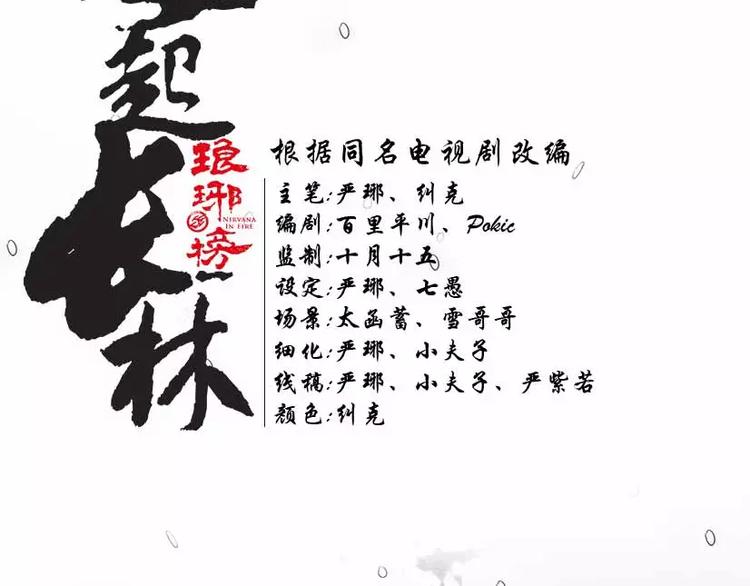 起长林
琅琊榜
NIRVANA
IN FIRE
根据同名电视剧改编
主笔:严琊、纠克
编剧:百里平川、Pokic
监制:十月十五
设定:严琊、七愚
场景:太函蓄、雪哥哥
细化:严琊、小夫子
线稿:严琊、小夫子、严紫若
颜色:纠克